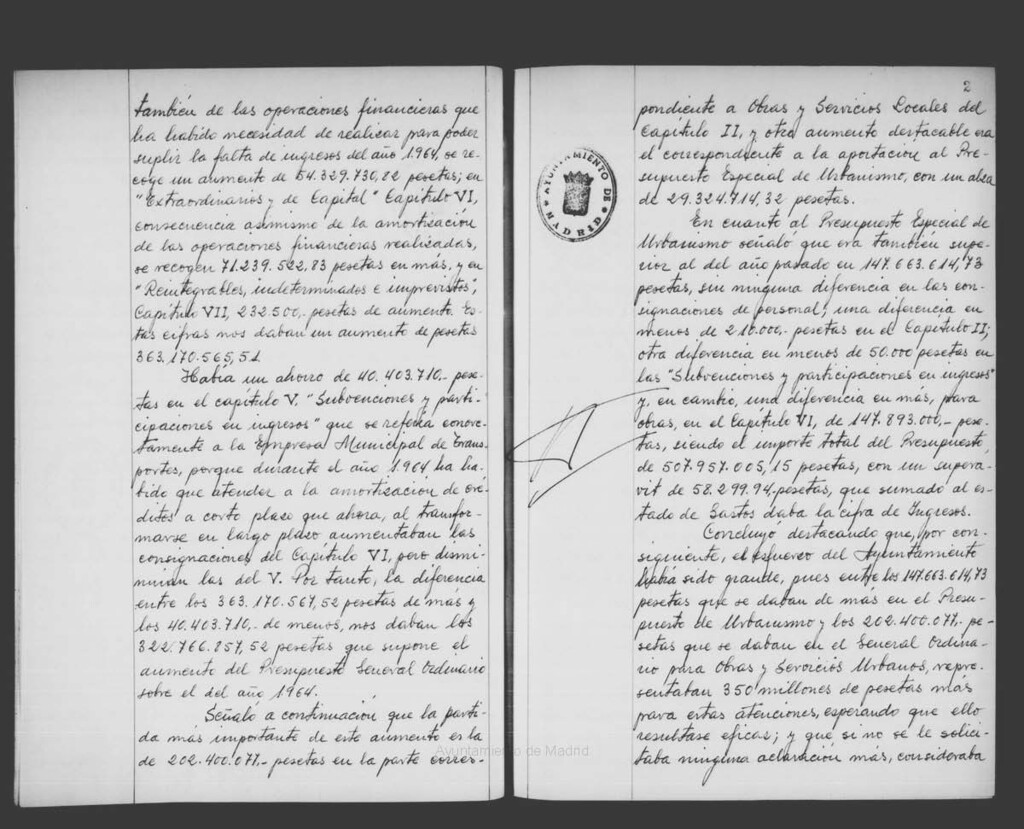 también de las operaciones financieras que
ha habido necesidad de realizar para poder
suplir la falta de ingresos del año 1.964, se re-
coge un aumento de 54.329.730,82 pesetas; en
"Extraordinarios y de Capital" Capítulo VI,
consecuencia asimismo de la amortización
de las operaciones financieras realizadas,
se recogen 71.239.522,83 pesetas en más, y en
"Reintegrables, indeterminados e imprevistos",
Capítulo VII, 232.500,- pesetas de aumento. Es-
tas cifras nos daban un aumento de pesetas
363.170.565,51
Había un ahorro de 40.403.710,- pese-
tas en el capítulo V. "Subvenciones y parti-
cipaciones en ingresos" que se refería concre-
tamente a la Empresa Municipal de Trans-
portes, porque durante el año 1.964 ha ha-
bido que atender a la amortización de cré-
ditos a corto plazo que ahora, al transfor-
marse en largo plazo aumentaban las
consignaciones del Capítulo VI, pero dismi-
nuían las del V. Por tanto, la diferencia
entre los 363.170.567,52 pesetas de más y
los 40.403.710,- de menos, nos daban los
322.766.857,52 pesetas que supone el
aumento del Presupuesto General Ordinario
sobre el del año 1.964.
Señaló a continuación que la parti-
da más importante de este aumento es la
de 202.400.077,- pesetas en la parte corres-
2
pondiente a Obras y Servicios Locales del
Capítulo II, y otro aumento destacable era
el correspondiente a la aportación al Pre-
supuesto Especial de Urbanismo, con un alza
de 29.324.714,32 pesetas.
En cuanto al Presupuesto Especial de
Urbanismo señaló que era también supe-
rior al del año pasado en 147.663.614,73
pesetas, sin ninguna diferencia en las con-
signaciones de personal; una diferencia en
menos de 210.000,- pesetas en el Capítulo II;
otra diferencia en menos de 50.000 pesetas en
las "Subvenciones y participaciones en ingresos"
y, en cambio, una diferencia en más, para
obras, en el Capítulo VI, de 147.893.000,- pese-
tas, siendo el importe total del Presupuesto
de 507.957.005,15 pesetas, con un superá-
vit de 58.299.94, pesetas, que sumado al es-
tado de Gastos daba la cifra de Ingresos.
Concluyó destacando que, por con-
siguiente, el esfuerzo del Ayuntamiento
había sido grande, pues entre los 147.663.614,73
pesetas que se daban de más en el Presu-
puesto de Urbanismo y los 202.400.077,- pe-
setas que se daban en el General Ordina-
rio para Obras y Servicios Urbanos, repre-
sentaban 350 millones de pesetas más
para estas atenciones, esperando que ello
resultase eficaz; y que si no se le solici-
taba ninguna aclaración más, consideraba
AYUNTAMIENTO DE
MADRID
Ayuntamiento de Madrid